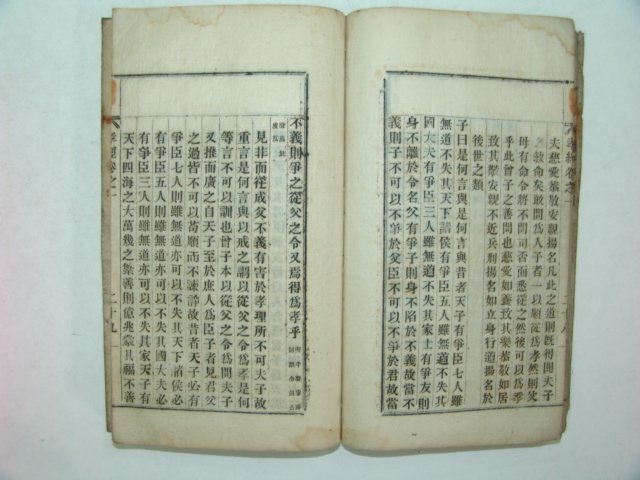 孝經卷之一
二十八
夫慈愛恭敬安親揚名凡此之道則既得聞夫子
之敎命矣敢問爲人子者一以順從爲孝然則父
母有命令將不問可否而悉從之然後可以爲孝
乎此曾子之善問也慈愛如養致其樂恭敬如居
致其敬安親不近兵刑揚名如立身行道揚名於
後世之類
子曰是何言與是何言與昔者天子有爭臣七人雖
無道不失其天下諸侯有爭臣五人雖無道不失其
國大夫有爭臣三人雖無道不失其家士有爭友則
身不離於令名父有爭子則身不陷於不義故當不
義則子不可以不爭於父臣不可以不爭於君故當
不義則爭之從父之令又爲得爲孝乎
見非而從成父不義有害於孝理所不可夫子故
重言是何言與以戒之謂以從父之令爲孝是何
等言不可以訓也曾子本以從父之令爲問夫子
又推而廣之自天子至於庶人爲臣子者見君父
之過皆不可以苟順而不諫諍故昔者天子必有
爭臣七人則雖無道亦可以不失其天下諸侯必
有爭臣五人則雖無道亦可以不失其國大夫必
有爭臣三人則雖無道亦可以不失其家天子有
天下四海之大萬幾之繁善則億兆蒙其福不善
孝經卷之一
二十九